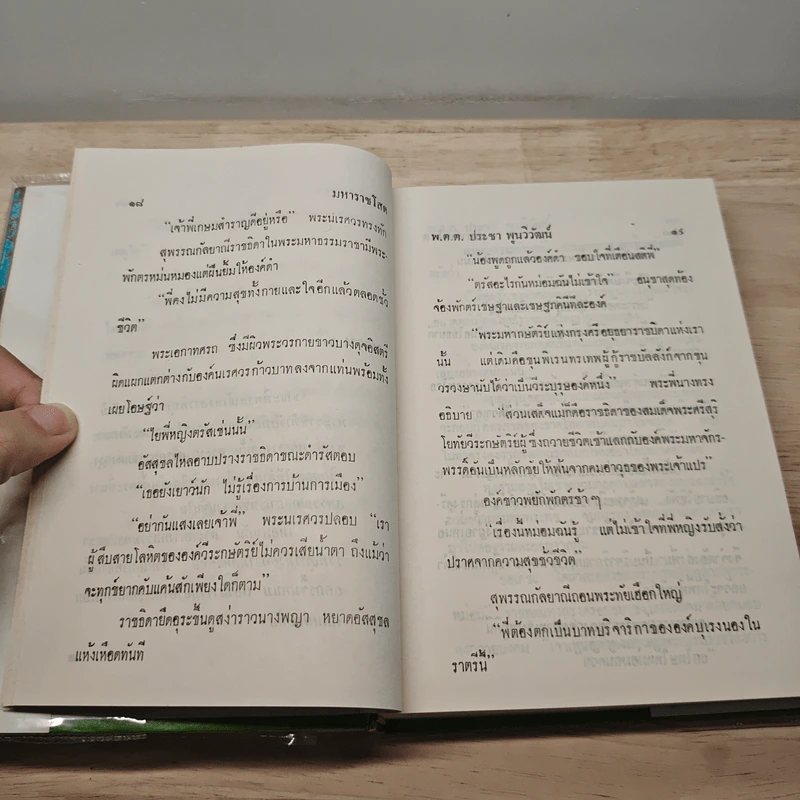 ๑๘ มหาราชโสด
“เจ้าพี่เกษมสำราญดีอยู่หรือ” พระนเรศวรทรงทัก
สุพรรณกัลยาณีราชธิดาในพระมหาธรรมราชามีพระ-
พักตรหม่นหมองแต่ฝืนยิ้มให้องค์ดำ
“พี่คงไม่มีความสุขทั้งกายและใจอีกแล้วตลอดชั่ว
ชีวิต”
พระเอกาทศรถ ซึ่งมีผิวพระวรกายขาวบางดุจอิสตรี
ผิดแผกแตกต่างกับองค์นเรศวรก้าวบาทลงจากแท่นพร้อมทั้ง
เผยโอษฐ์ว่า
“ไยพี่หญิงตรัสเช่นนั้น”
อัสสุชลไหลอาบปรางราชธิดาขณะดำรัสตอบ
“เธอยังเยาว์นัก ไม่รู้เรื่องการบ้านการเมือง”
“อย่ากันแสงเลยเจ้าพี่” พระนเรศวรปลอบ “เรา
ผู้สืบสายโลหิตขององค์วีระกษัตริย์ไม่ควรเสียน้ำตา ถึงแม้ว่า
จะทุกข์ยากคับแค้นสักเพียงใดก็ตาม”
ราชธิดายืดอุระขึ้นดูสง่าราวนางพญา หยาดอัสสุชล
แห้งเหือดทันที
พ.ต.ต. ประชา พูนวิวัฒน์ ๑๙
“น้องพูดถูกแล้วองค์ดำ ขอบใจที่เตือนสติพี่”
“ตรัสอะไรกันหม่อมฉันไม่เข้าใจ” อนุชาสุดท้อง
จ้องพักตร์เชษฐาและเชษฐภคินีทีละองค์
“พระมหากษัตริย์แห่งกรุงศรีอยุธยาราชบิดาแห่งเรา
นั้น แต่เดิมคือขุนพิเรนทรเทพผู้กู้ราชบัลลังก์จากขุน
วรวงษานับได้ว่าเป็นวีระบุรุษองค์หนึ่ง” พระพี่นางทรง
อธิบาย “ส่วนเสด็จแม่ก็คือราชธิดาของสมเด็จพระศรีสุริ
โยทัยวีระกษัตริย์ผู้ซึ่งถวายชีวิตเข้าแลกกับองค์พระมหาจักร-
พรรดิ์อันเป็นหลักชัยให้พ้นจากคมอาวุธของพระเจ้าแปร”
องค์ขาวพยักพักตร์ช้า ๆ
“เรื่องนี้หม่อมฉันรู้ แต่ไม่เข้าใจที่พี่หญิงรับสั่งว่า
ปราศจากความสุขชั่วชีวิต”
สุพรรณกัลยาณีถอนพระทัยเฮือกใหญ่
“พี่ต้องตกเป็นบาทบริจาริกาขององค์บุเรงนองใน
ราตรีนี้”